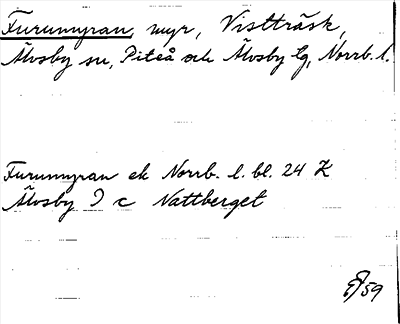 Furumyran, myr, Vistträsk,
Älvsby sn, Piteå och Älvsby tg, Norrb. l.
Furumyran ek Norrb. l. bl. 24 K
Älvsby I c Nattberget
59